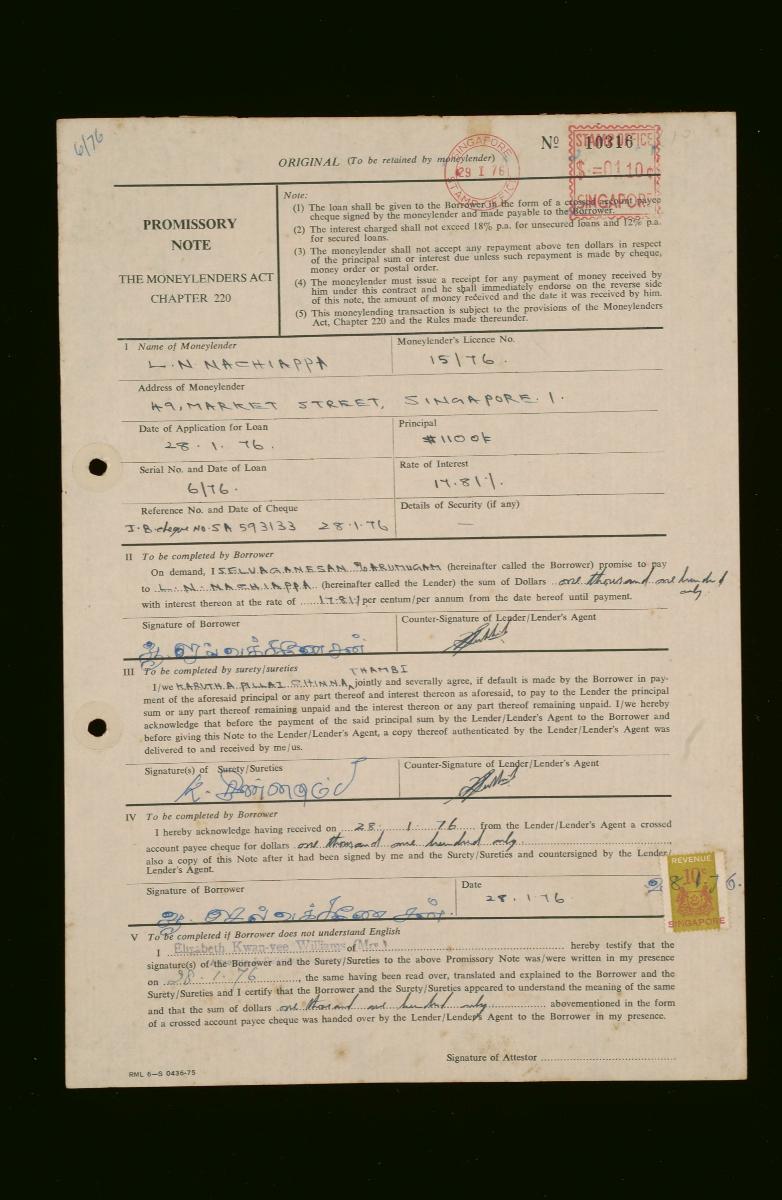 6/76
ORIGINAL (To be retained by moneylender)
SINGAPORE
29 I 76
STAMP OFFICE
Nº 10316
STAMP OFFICE
$ =01.10c
SINGAPORE
PROMISSORY
NOTE
THE MONEYLENDERS ACT
CHAPTER 220
Note:
(1) The loan shall be given to the Borrower in the form of a crossed account payee
cheque signed by the moneylender and made payable to the Borrower.
(2) The interest charged shall not exceed 18% p.a. for unsecured loans and 12% p.a.
for secured loans.
(3) The moneylender shall not accept any repayment above ten dollars in respect
of the principal sum or interest due unless such repayment is made by cheque,
money order or postal order.
(4) The moneylender must issue a receipt for any payment of money received by
him under this contract and he shall immediately endorse on the reverse side
of this note, the amount of money received and the date it was received by him.
(5) This moneylending transaction is subject to the provisions of the Moneylenders
Act, Chapter 220 and the Rules made thereunder.
I Name of Moneylender
L. N NACHIAPPA
Moneylender's Licence No.
15/76.
Address of Moneylender
49, MARKET STREET, SINGAPORE. 1.
Date of Application for Loan
28. 1. 76.
Principal
$1100/-
Serial No. and Date of Loan
6/76.
Rate of Interest
17.81%.
Reference No. and Date of Cheque
I.B. cheque No. SA 593133 28.1.76
Details of Security (if any)
—
II To be completed by Borrower
On demand, I SELVAGANESAN S/o ARUMUGAM (hereinafter called the Borrower) promise to pay
to L. N. NACHIAPPA (hereinafter called the Lender) the sum of Dollars one thousand one hundred
only
with interest thereon at the rate of 17.81% per centum/per annum from the date hereof until payment.
Signature of Borrower
Counter-Signature of Lender/Lender's Agent
III To be completed by surety/sureties
THAMBI
I/we KARUTHA PILLAI CHINNA jointly and severally agree, if default is made by the Borrower in pay-
ment of the aforesaid principal or any part thereof and interest thereon as aforesaid, to pay to the Lender the principal
sum or any part thereof remaining unpaid and the interest thereon or any part thereof remaining unpaid. I/we hereby
acknowledge that before the payment of the said principal sum by the Lender/Lender's Agent to the Borrower and
before giving this Note to the Lender/Lender's Agent, a copy thereof authenticated by the Lender/Lender's Agent was
delivered to and received by me/us.
Signature(s) of Surety/Sureties
Counter-Signature of Lender/Lender's Agent
IV To be completed by Borrower
I hereby acknowledge having received on 28. 1. 76 from the Lender/Lender's Agent a crossed
account payee cheque for dollars one thousand one hundred only
also a copy of this Note after it had been signed by me and the Surety/Sureties and countersigned by the Lender/
Lender's Agent.
Signature of Borrower
Date
28.1.76
28.1.76.
REVENUE
10c
SINGAPORE
V To be completed if Borrower does not understand English
I Elizabeth Kwan-yee Williams (Mrs.) of hereby testify that the
signature(s) of the Borrower and the Surety/Sureties to the above Promissory Note was/were written in my presence
on 28.1.76, the same having been read over, translated and explained to the Borrower and the
Surety/Sureties and I certify that the Borrower and the Surety/Sureties appeared to understand the meaning of the same
and that the sum of dollars one thousand one hundred only abovementioned in the form
of a crossed account payee cheque was handed over by the Lender/Lender's Agent to the Borrower in my presence.
Signature of Attestor
RML 6—S 0436-75